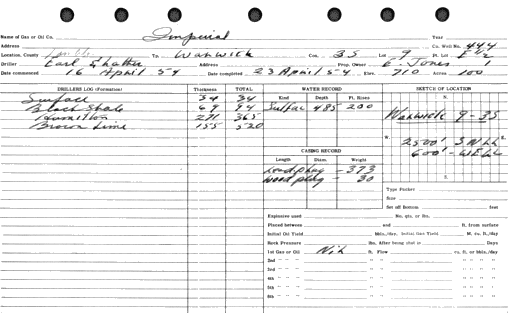 Name of Gas or Oil Co. Imperial Year
Address Co. Well No. 444
Location, County Lambton Tp. Warwick Con. 35 Lot 9 Pt. Lot E 1/2
Driller Earl Shatter Address Prop. Owner E. Jones
Date commenced 16 April 54 Date completed 23 April 54 Elev. 710 Acres 100
DRILLERS LOG (Formation) Thickness TOTAL WATER RECORD SKETCH OF LOCATION
Surface 34 34 Kind Depth Ft. Rises N.
Black Shale 69 94 Sulfur 485 200
Hamilton 271 365 Warwick 9-35
Brown Lime 155 520
W. 2500' S N LL E.
CASING RECORD 600' - W E LL
Length Diam. Weight
Lead plug - 373
wood pldg - 30 S.
Type Packer
Size
Set off bottom feet
Explosive used No. qts. or lbs.
Placed between and ft. from surface
Initial Oil Yield bbls./day, Initial Gas Yield M. cu. ft./day
Rock Pressure lbs. After being shut in Days
1st Gas or Oil Nil ft. Flow cu. ft. or bbls./day
2nd " " " " " " " "
3rd " " " " " " " "
4th " " " " " " " "
5th " " " " " " " "
6th " " " " " " " "